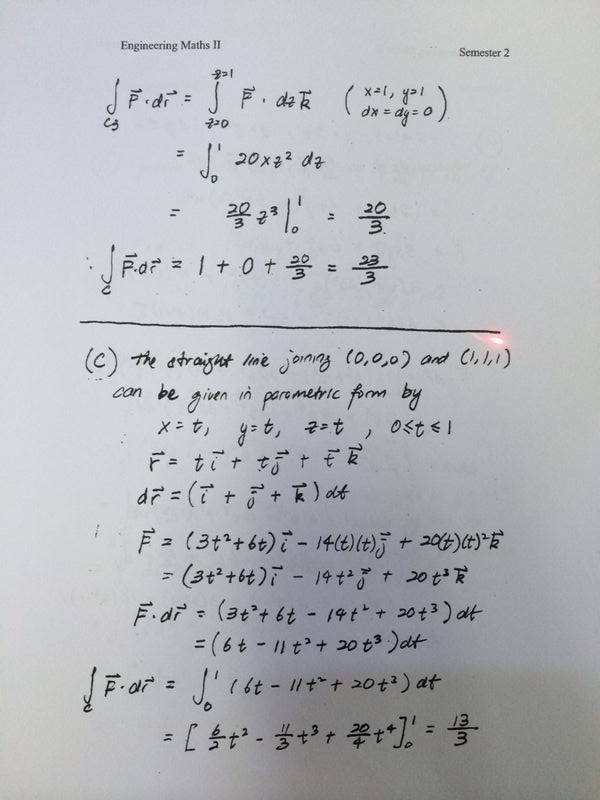 Engineering Maths II
Semester 2
∫_{C3} F⃗·dr⃗ = ∫_{z=0}^{z=1} F⃗ · dz k⃗ (x=1, y=1 dx = dy = 0)
= ∫₀¹ 20xz² dz
= 20/3 z³ |₀¹ = 20/3
∴ ∫_C F⃗·dr⃗ = 1 + 0 + 20/3 = 23/3
(C) the straight line joining (0,0,0) and (1,1,1)
can be given in parametric form by
x = t, y = t, z = t , 0≤t≤1
r⃗ = t i⃗ + t j⃗ + t⃗ k⃗
dr⃗ = (i⃗ + j⃗ + k⃗) dt
F⃗ = (3t²+6t) i⃗ - 14(t)(t) j⃗ + 20(t)(t)² k⃗
= (3t²+6t) i⃗ - 14t² j⃗ + 20t³ k⃗
F⃗·dr⃗ = (3t²+6t - 14t² + 20t³) dt
= (6t - 11t² + 20t³) dt
∫_C F⃗·dr⃗ = ∫₀¹ (6t - 11t² + 20t³) dt
= [6/2 t² - 11/3 t³ + 20/4 t⁴]₀¹ = 13/3